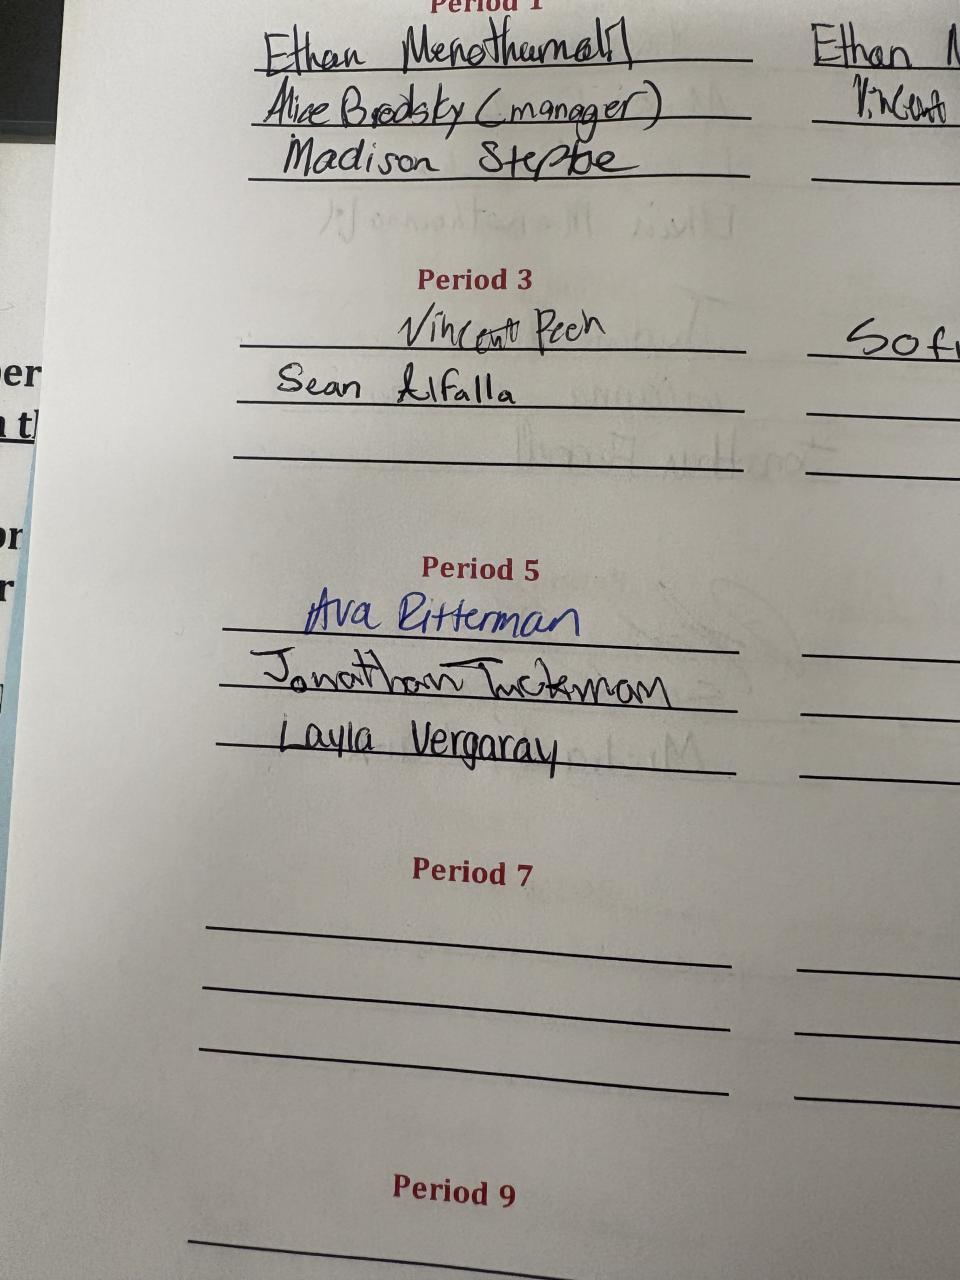 Period 1
Ethan Menothumalil
Ethan
Alice Brodsky (manager)
Vincent
Madison Stepbe
Period 3
Vincent Pech
Sof
Sean Alfalla
Period 5
Ava Ritterman
Jonathan Tuckman
Layla Vergaray
Period 7
Period 9
er
or
r